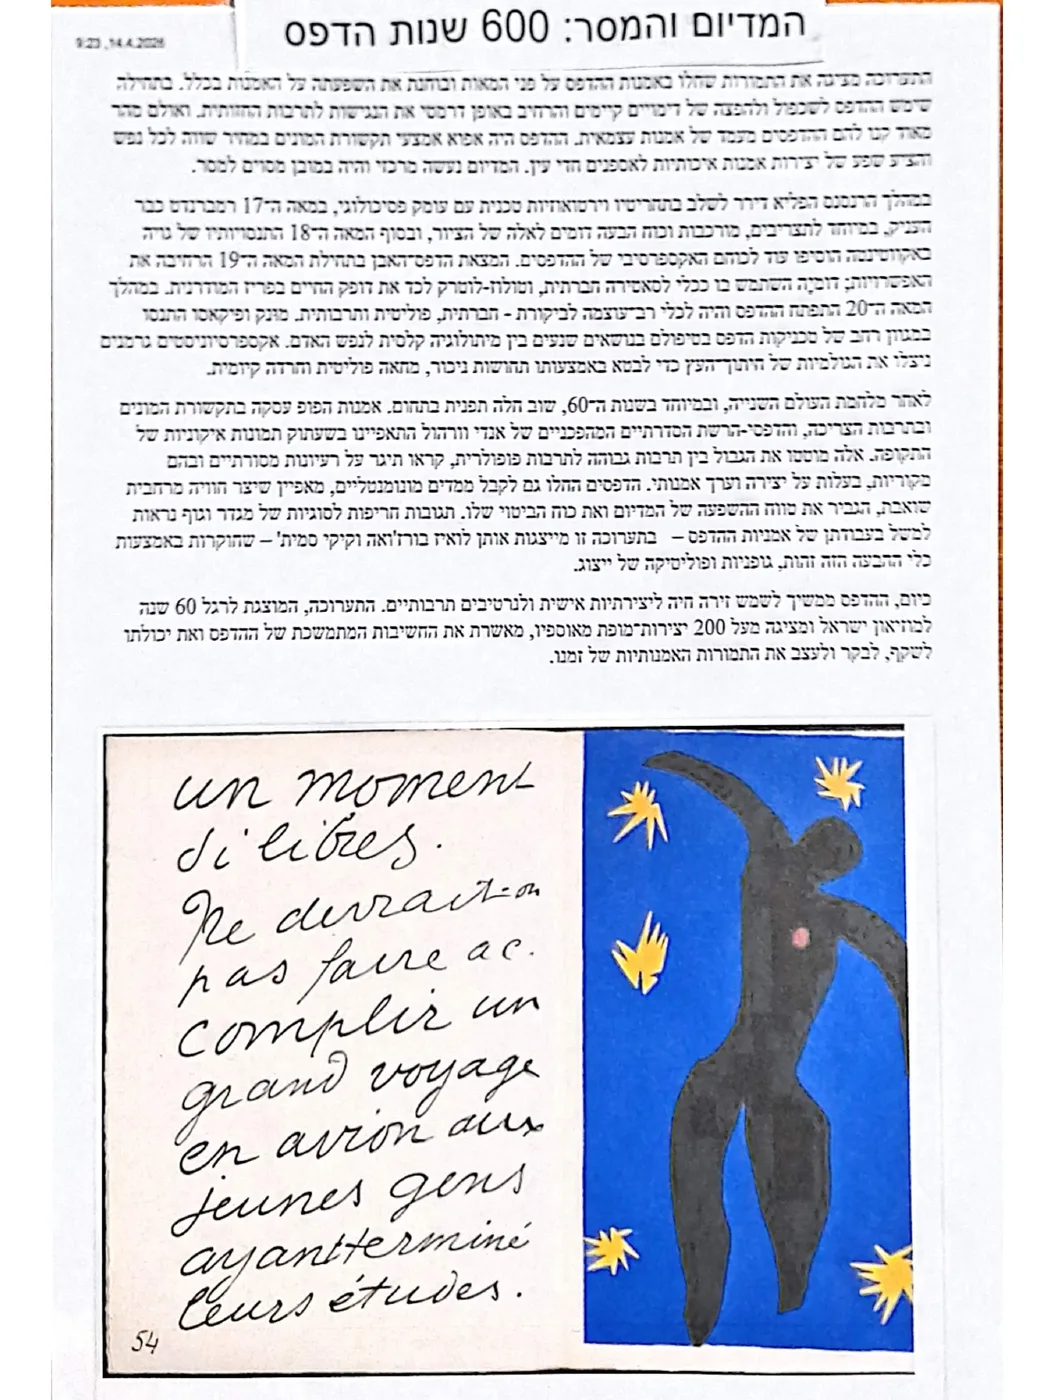 המדיום והמסר: 600 שנות הדפס
9:23 ,14.4.2026
התערוכה מציגה את התמורות שחלו באמנות ההדפס על פני המאות ובוחנת את השפעתה על האמנות בכלל. בתחילה
שימש ההדפס לשכפול ולהפצה של דימויים קיימים והרחיב באופן דרמטי את הנגישות לתרבות החזותית, ואולם מהר
מאוד קנו להם ההדפסים מעמד של אמנות עצמאית. ההדפס היה אפוא אמצעי תקשורת המונים במחיר שווה לכל נפש
והציע שפע של יצירות אמנות איכותיות לאספנים חדי עין. המדיום נעשה מרכזי והיה במובן מסוים למסר.
במהלך הרנסנס הפליא דירר לשלב בתחריטיו וירטואוזיות טכנית עם עומק פסיכולוגי, במאה ה־17 רמברנדט כבר
העניק, במיוחד לתצריבים, מורכבות וכוח הבעה דומים לאלה של הציור, ובסוף המאה ה־18 התנסויותיו של גויה
באקווטינטה הוסיפו עוד לכוחם האקספרסיבי של ההדפסים. המצאת הדפס־האבן בתחילת המאה ה־19 הרחיבה את
האפשרויות; דומיֶה השתמש בו ככלי לסאטירה חברתית, וטולוז-לוטרק לכד את דופק החיים בפריז המודרנית. במהלך
המאה ה־20 התפתח ההדפס והיה לכלי רב־עוצמה לביקורת - חברתית, פוליטית ותרבותית. מונק ופיקאסו התנסו
במגוון רחב של טכניקות הדפס בטיפולם בנושאים שנעים בין מיתולוגיה קלסית לנפש האדם. אקספרסיוניסטים גרמנים
ניצלו את הגולמיות של חיתוך־העץ כדי לבטא באמצעותו תחושות ניכור, מחאה פוליטית וחרדה קיומית.
לאחר מלחמת העולם השנייה, ובמיוחד בשנות ה־60, שוב חלה תפנית בתחום. אמנות הפופ עסקה בתקשורת המונים
ובתרבות הצריכה, והדפסי-הרשת הסדרתיים המהפכניים של אנדי וורהול התאפיינו בשעתוק תמונות איקוניות של
התקופה. אלה מוטטו את הגבול בין תרבות גבוהה לתרבות פופולרית, קראו תיגר על רעיונות מסורתיים ובהם
מקוריות, בעלות על יצירה וערך אמנותי. הדפסים החלו גם לקבל ממדים מונומנטליים, מאפיין שיצר חוויה מרחבית
שואבת, הגביר את טווח ההשפעה של המדיום ואת כוח הביטוי שלו. תגובות חריפות לסוגיות של מגדר וגוף נראות
למשל בעבודתן של אמניות ההדפס – בתערוכה זו מייצגות אותן לואיז בורז'ואה וקיקי סמית' – שחוקרות באמצעות
כלי ההבעה הזה זהות, גופניות ופוליטיקה של ייצוג.
כיום, ההדפס ממשיך לשמש זירה חיה ליצירתיות אישית ולנרטיבים תרבותיים. התערוכה, המוצגת לרגל 60 שנה
למוזיאון ישראל ומציגה מעל 200 יצירות־מופת מאוספיו, מאשרת את החשיבות המתמשכת של ההדפס ואת יכולתו
לשקף, לבקר ולעצב את התמורות האמנותיות של זמנו.
un moment
di libres.
Ne devrait-on
pas faire ac.
complir un
grand voyage
en avion aux
jeunes gens
ayant terminé
leurs études.
54